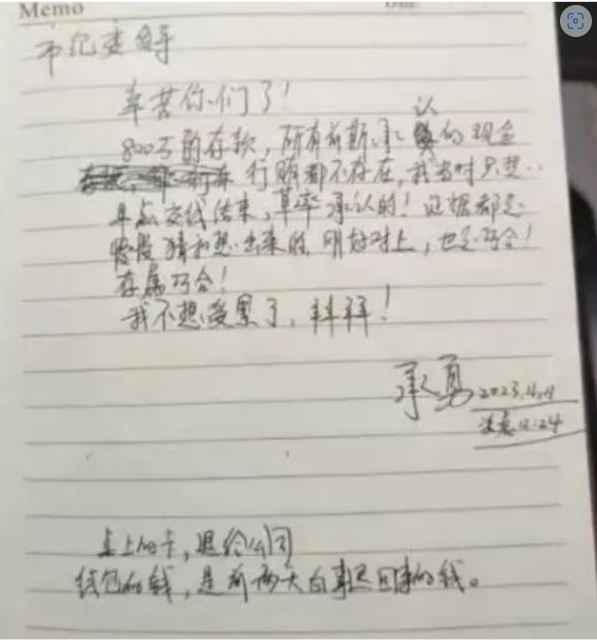 Memo
Date
市纪委领导
辛苦你们了！
认
800万的存款，所有前期承的现金
行贿都不存在，我当时只想
早点交钱结束，草率承认的！证据都是
慢慢猜和想出来的，刚好对上，也是巧合！
存属巧合！
我不想受累了，拜拜！
承勇 2023.4.4
凌晨12:24
桌上的卡，退给公司
钱包的钱，是前两天白事回来的钱。